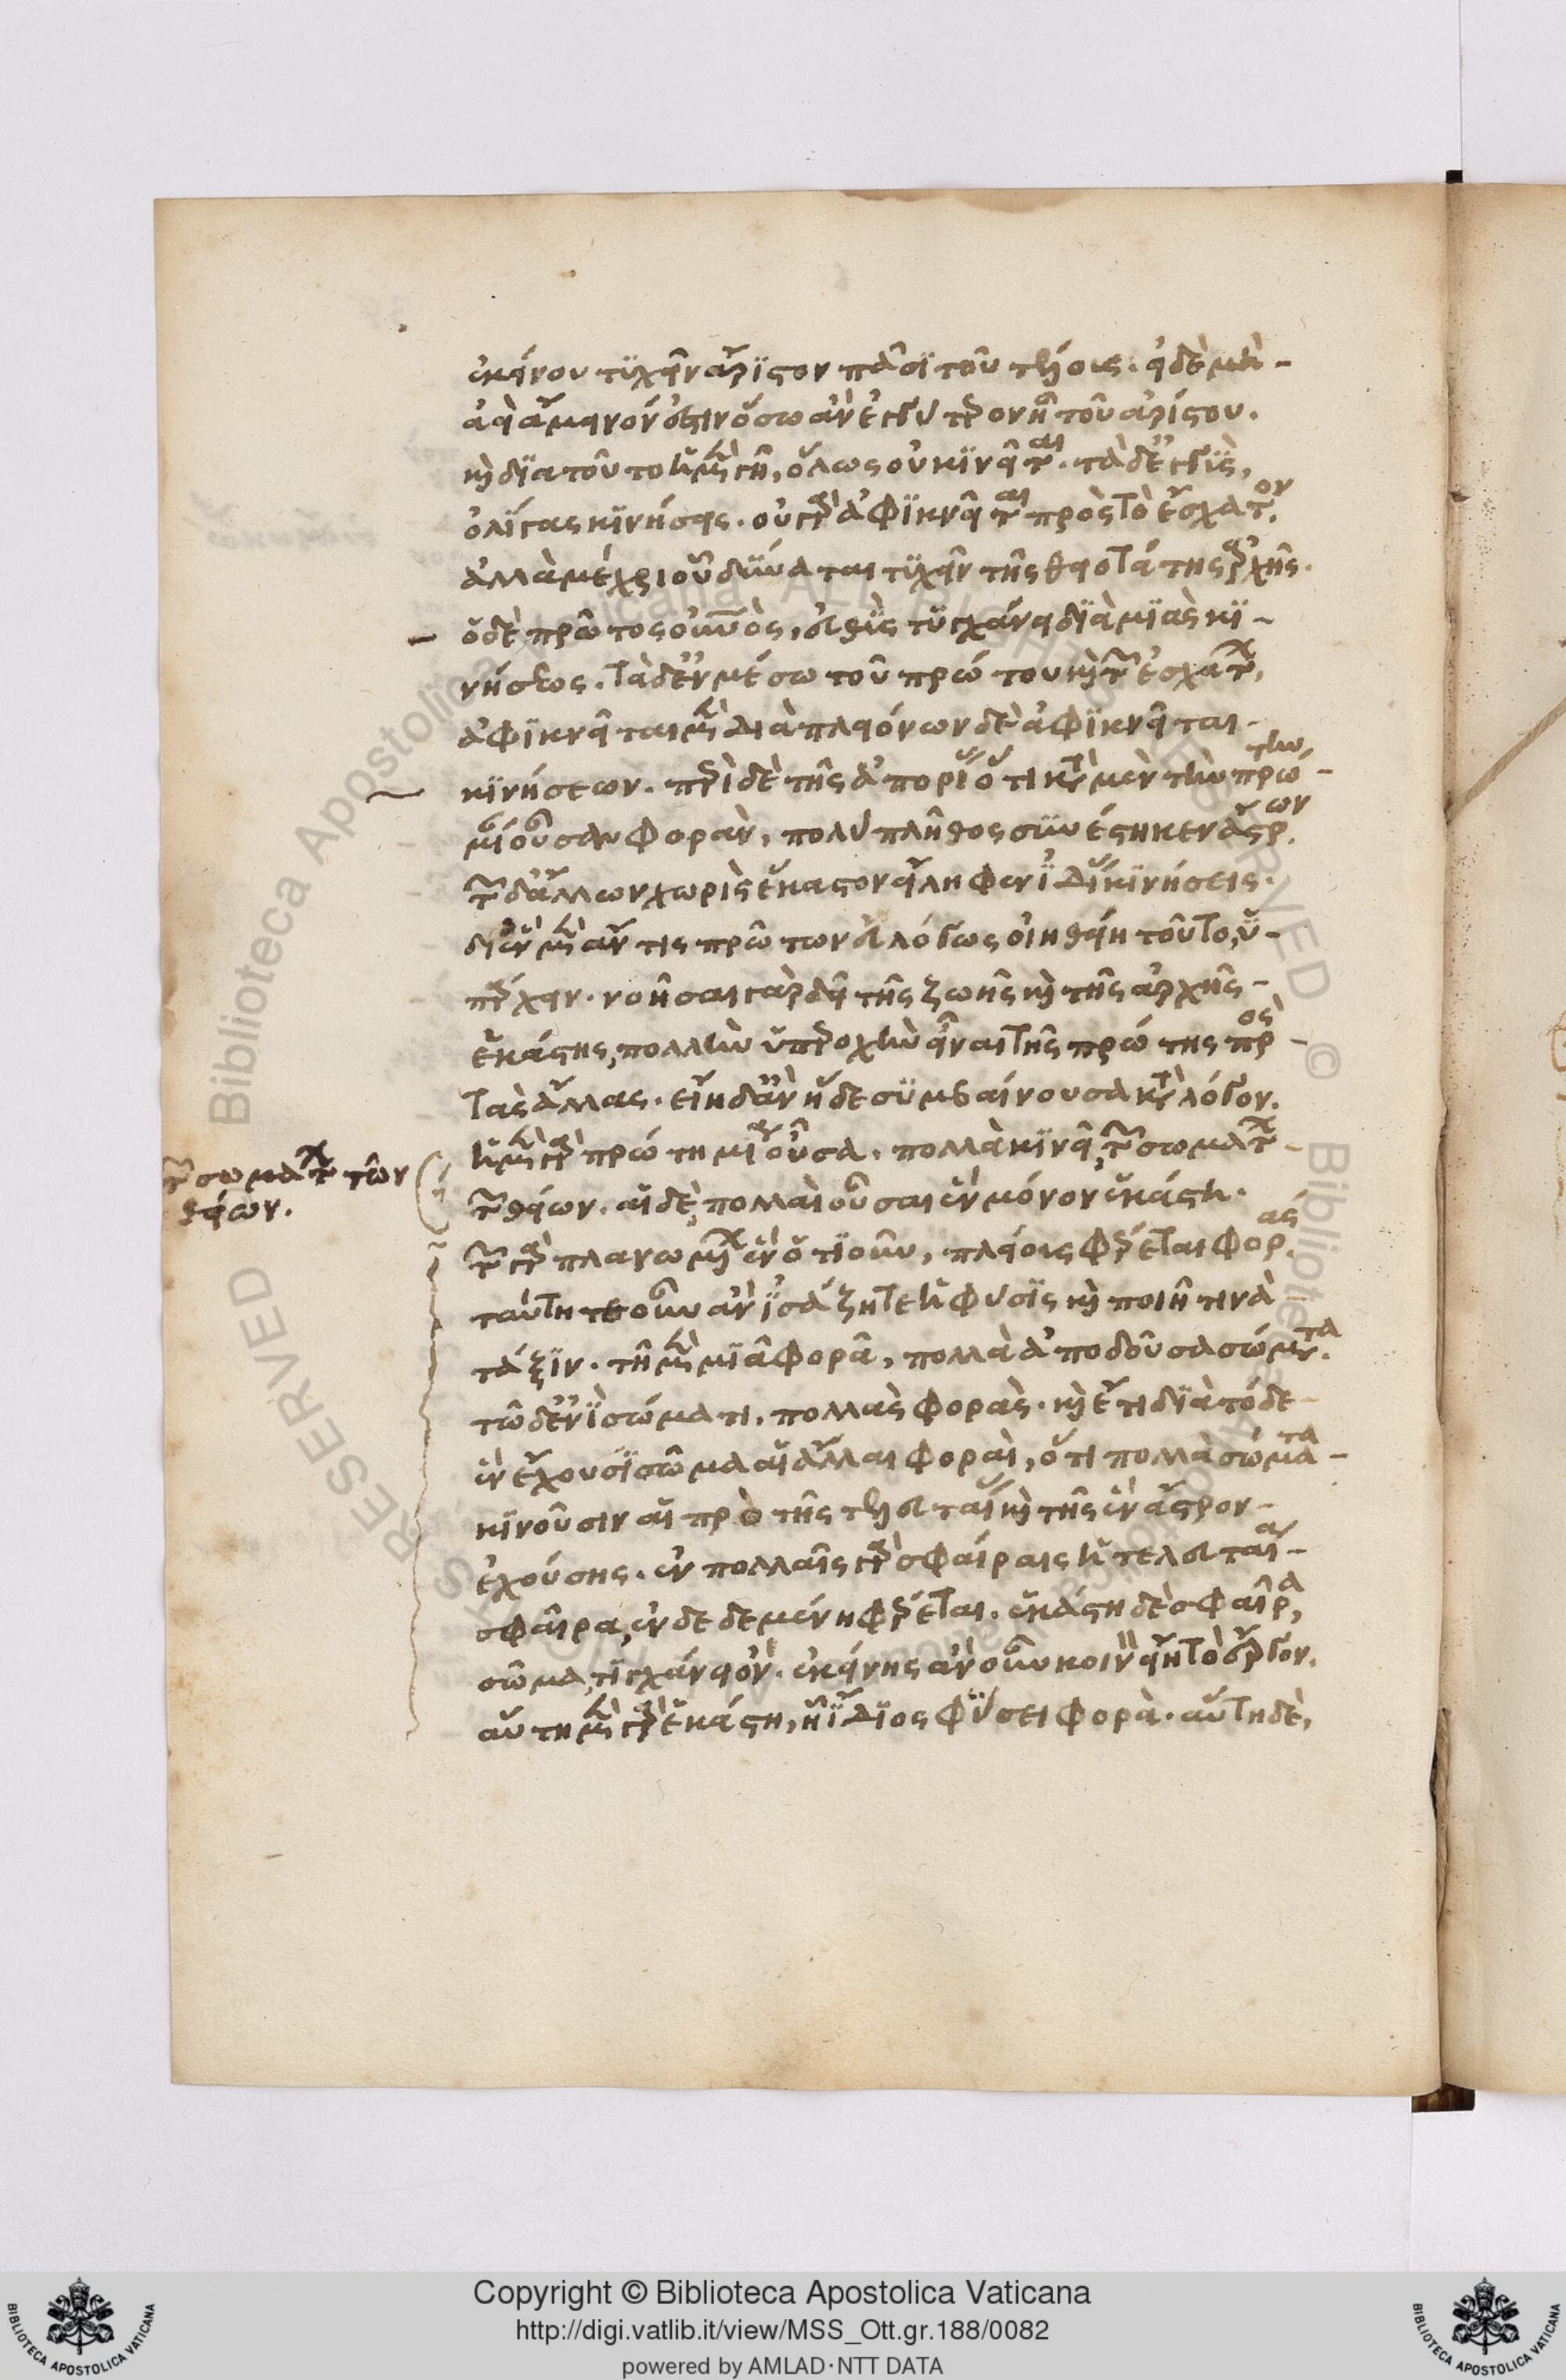 ἐκείνου τυχεῖν ἄριστον πᾶσι τοῦ τέλους. εἰ δὲ μὴ -
ἀεὶ ἄμεινόν ἐστιν ὅσω ἂν ἐγγύτερον ῇ τοῦ ἀρίστου.
καὶ διατοῦτο ἡ μὲν γῆ, ὅλως οὐ κινεῖται. τὰ δ' ἐγγὺς,
ὀλίγας κινήσεις. οὐ γὰρ ἀφικνεῖται πρὸς τὸ ἔσχατον.
ἀλλὰ μέχρι οὗ δύναται τυχεῖν τῆς θειοτάτης ἀρχῆς.
ὁ δὲ πρῶτος οὐρανὸς, εὐθὺς τυγχάνει διὰ μιᾶς κι -
νήσεως. τὰ δ' ἐν μέσω τοῦ πρώτου καὶ τῶν ἐσχάτων,
ἀφικνεῖται μὲν διὰ πλειόνων δὲ ἀφικνεῖται -
κινήσεων. περὶ δὲ τῆς ἀπορίας ὅτι κατὰ μὲν τὴν πρώτην -
μίαν οὖσαν φορὰν, πολὺ πλῆθος συνέστηκεν ἄστρων.
τῶν δ' ἄλλων χωρὶς ἕκαστον εἴληφεν ἰδίας κινήσεις.
δι' ἓν μὲν ἄν τις πρῶτον εὐλόγως οἰηθείη τοῦτο, ὑ -
πάρχειν. νοῆσαι γὰρ δεῖ τῆς ζωῆς καὶ τῆς ἀρχῆς -
ἑκάστης, πολλὴν ὑπεροχὴν εἶναι τῆς πρώτης πρὸς -
τὰς ἄλλας. εἴη δ' ἂν ἥδε συμβαίνουσα κατὰ λόγον.
ἡ μὲν γὰρ πρώτη μία οὖσα. πολλὰ κινεῖ, τῶν σωμάτων -
τῶν θείων. αἱ δὲ, πολλαὶ οὖσαι ἓν μόνον ἑκάστη.
τῶν σωμάτων τῶν
θείων.
τῶν γὰρ πλανωμένων ἓν ὁτιοῦν, πλείους φέρεται φοράς.
ταύτη τε οὖν ἀνισάζη τε ἡ φύσις καὶ ποιῆ τινὰ -
τάξιν. τῆ μὲν μιᾶ φορᾶ, πολλὰ ἀποδοῦσα σώματα.
τῶ δ' ἑνὶ σώματι, πολλὰς φοράς. καὶ ἔτι διὰ τόδε -
ἓν ἔχουσι σῶμα αἱ ἄλλαι φοραὶ, ὅτι πολλὰ σώματα -
κινοῦσιν αἱ πρὸ τῆς τελευταίας καὶ τῆς ἓν ἄστρον -
ἐχούσης. ἐν πολλαῖς γὰρ σφαίραις ἡ τελευταία -
σφαῖρα, ἐνδεδεμένη φέρεται. ἑκάστη δὲ σφαῖρα,
σῶμα, τι τυγχάνει ὄν. ἐκείνης ἂν οὖν κοινὸν εἴη τὸ ἔργον.
αὕτη μὲν γὰρ ἑκάστη, ἡ ἴδιος φύσει φορά. αὕτη δὲ,
Copyright © Biblioteca Apostolica Vaticana
http://digi.vatlib.it/view/MSS_Ott.gr.188/0082
powered by AMLAD·NTT DATA
BIBLIOTECA APOSTOLICA VATICANA
BIBLIOTECA APOSTOLICA VATICANA